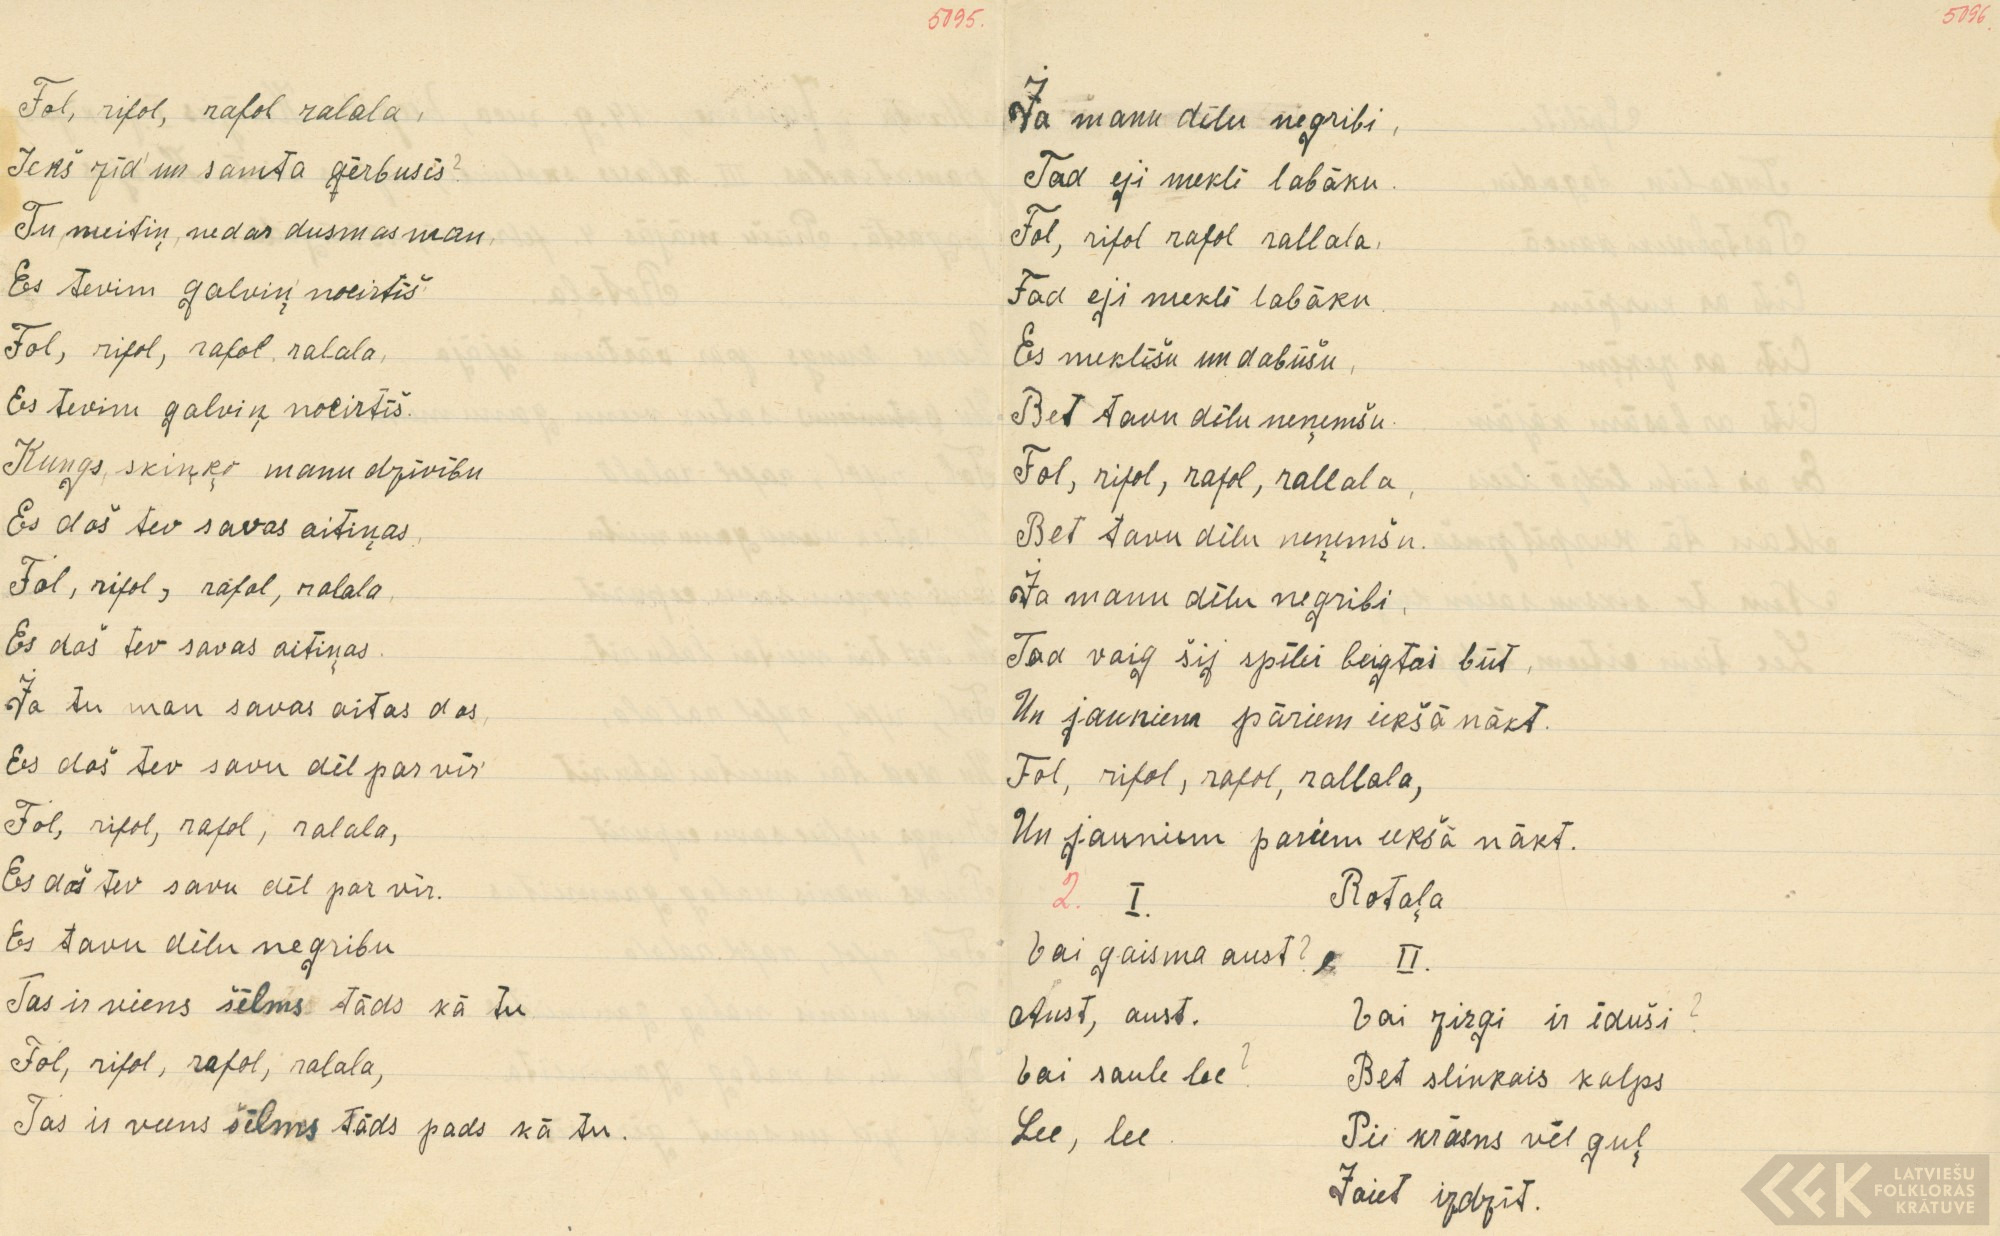 5095.
Fol, rifol, rafol ralala,
Iekš zīd' un samta ģērbusēs?
Tu, meitiņ, nedar dusmas man,
Es tevim galviņ' nocirtīš'
Fol, rifol, rafol, ralala,
Es tevim galviņ nocirtīš.
Kungs, skiņķo manu dzīvību
Es došs tev savas aitiņas,
Fol, rifol, rafol, ralala,
Es doš tev savas aitiņas.
Ja tu man savas aitas dos,
Es doš tev savu dēl par vīr'
Fol, rifol, rafol, ralala,
Es doš tev savu dēl par vīr.
Es tavu dēlu negribu
Tas ir viens šēlms tāds kā tu
Fol, rifol, rafol, ralala,
Tas ir viens šēlms tāds pads kā tu.
5096.
Ja manu dēlu negribi,
Tad eji meklē labāku.
Fol, rifol rafol rallala,
Tad eji meklē labāku.
Es meklēšu un dabūšu,
Bet tavu dēlu neņemšu.
Fol, rifol, rafol, rallala,
Bet tavu dēlu neņemšu.
Ja manu dēlu negribi,
Tad vaig šij spēlei beigtai būt,
Un jauniem pāriem iekšā nākt.
Fol, rifol, rafol, rallala,
Un jauniem pariem iekšā nākt.
2. I. Rotaļa
Vai gaisma aust?
Aust, aust.
Vai saule lec?
Lec, lec.
II.
Vai zirgi ir ēduši?
Bet slinkais kalps
Pie krāsns vēl guļ
Jaiet izdzīt.
LATVIEŠU
FOLKLORAS
KRĀTUVE